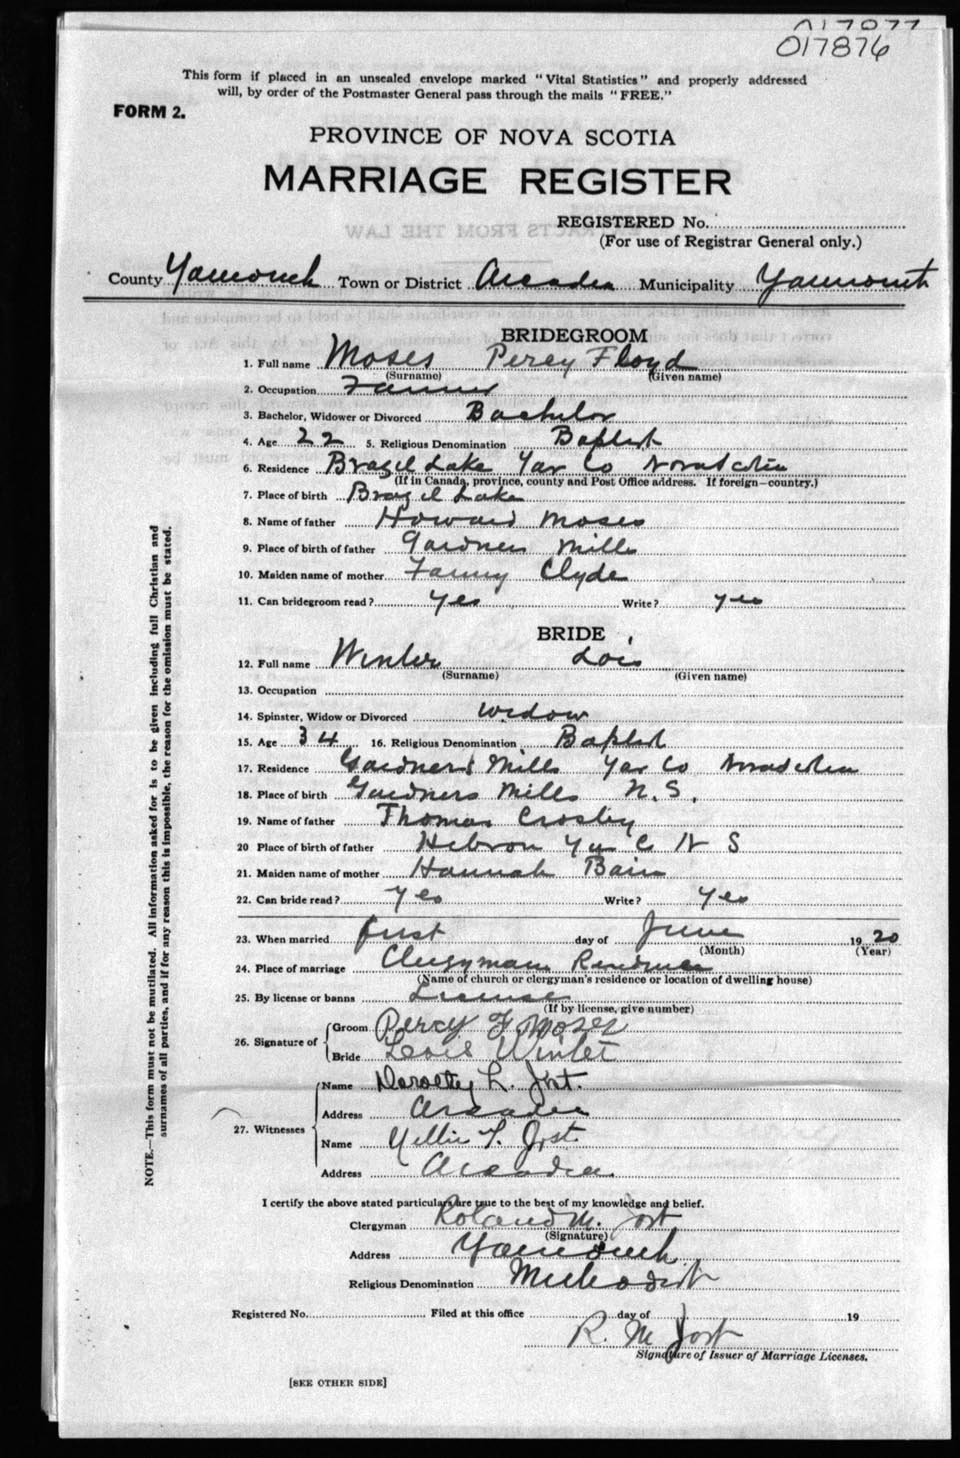 017877
017876
This form if placed in an unsealed envelope marked "Vital Statistics" and properly addressed
will, by order of the Postmaster General pass through the mails "FREE."
FORM 2.
PROVINCE OF NOVA SCOTIA
MARRIAGE REGISTER
REGISTERED No.
(For use of Registrar General only.)
County Yarmouth Town or District Arcadia Municipality Yarmouth
BRIDEGROOM
1. Full name Moses Percy Floyd
(Surname) (Given name)
2. Occupation Farmer
3. Bachelor, Widower or Divorced Bachelor
4. Age 22 5. Religious Denomination Baptist
6. Residence Brazil Lake Yar Co Nova Scotia
(If in Canada, province, county and Post Office address. If foreign—country.)
7. Place of birth Brazil Lake
8. Name of father Howard Moses
9. Place of birth of father Gardners Mills
10. Maiden name of mother Fanny Clyde
11. Can bridegroom read? yes Write? yes
BRIDE
12. Full name Winter Lois
(Surname) (Given name)
13. Occupation
14. Spinster, Widow or Divorced widow
15. Age 34 16. Religious Denomination Baptist
17. Residence Gardners Mills Yar Co Nova Scotia
18. Place of birth Gardners Mills N.S.
19. Name of father Thomas Crosby
20 Place of birth of father Hebron Yar Co N S
21. Maiden name of mother Hannah Bain
22. Can bride read? yes Write? yes
23. When married first day of June 1920
(Month) (Year)
24. Place of marriage Clergymans Residence
(Name of church or clergyman's residence or location of dwelling house)
25. By license or banns License
(If by license, give number)
26. Signature of Groom Percy F Moses
Bride Lois Winter
27. Witnesses Name Dorothy L. Jost.
Address Arcadia
Name Nellie T. Jost
Address Arcadia
I certify the above stated particulars are true to the best of my knowledge and belief.
Clergyman Roland M. Jost
(Signature)
Address Yarmouth
Religious Denomination Methodist
Registered No. Filed at this office day of 19
R. M Jost
Signature of Issuer of Marriage Licenses.
[SEE OTHER SIDE]
NOTE.—This form must not be mutilated. All information asked for is to be given including full Christian and
surnames of all parties, and if for any reason this is impossible, the reason for the omission must be stated.